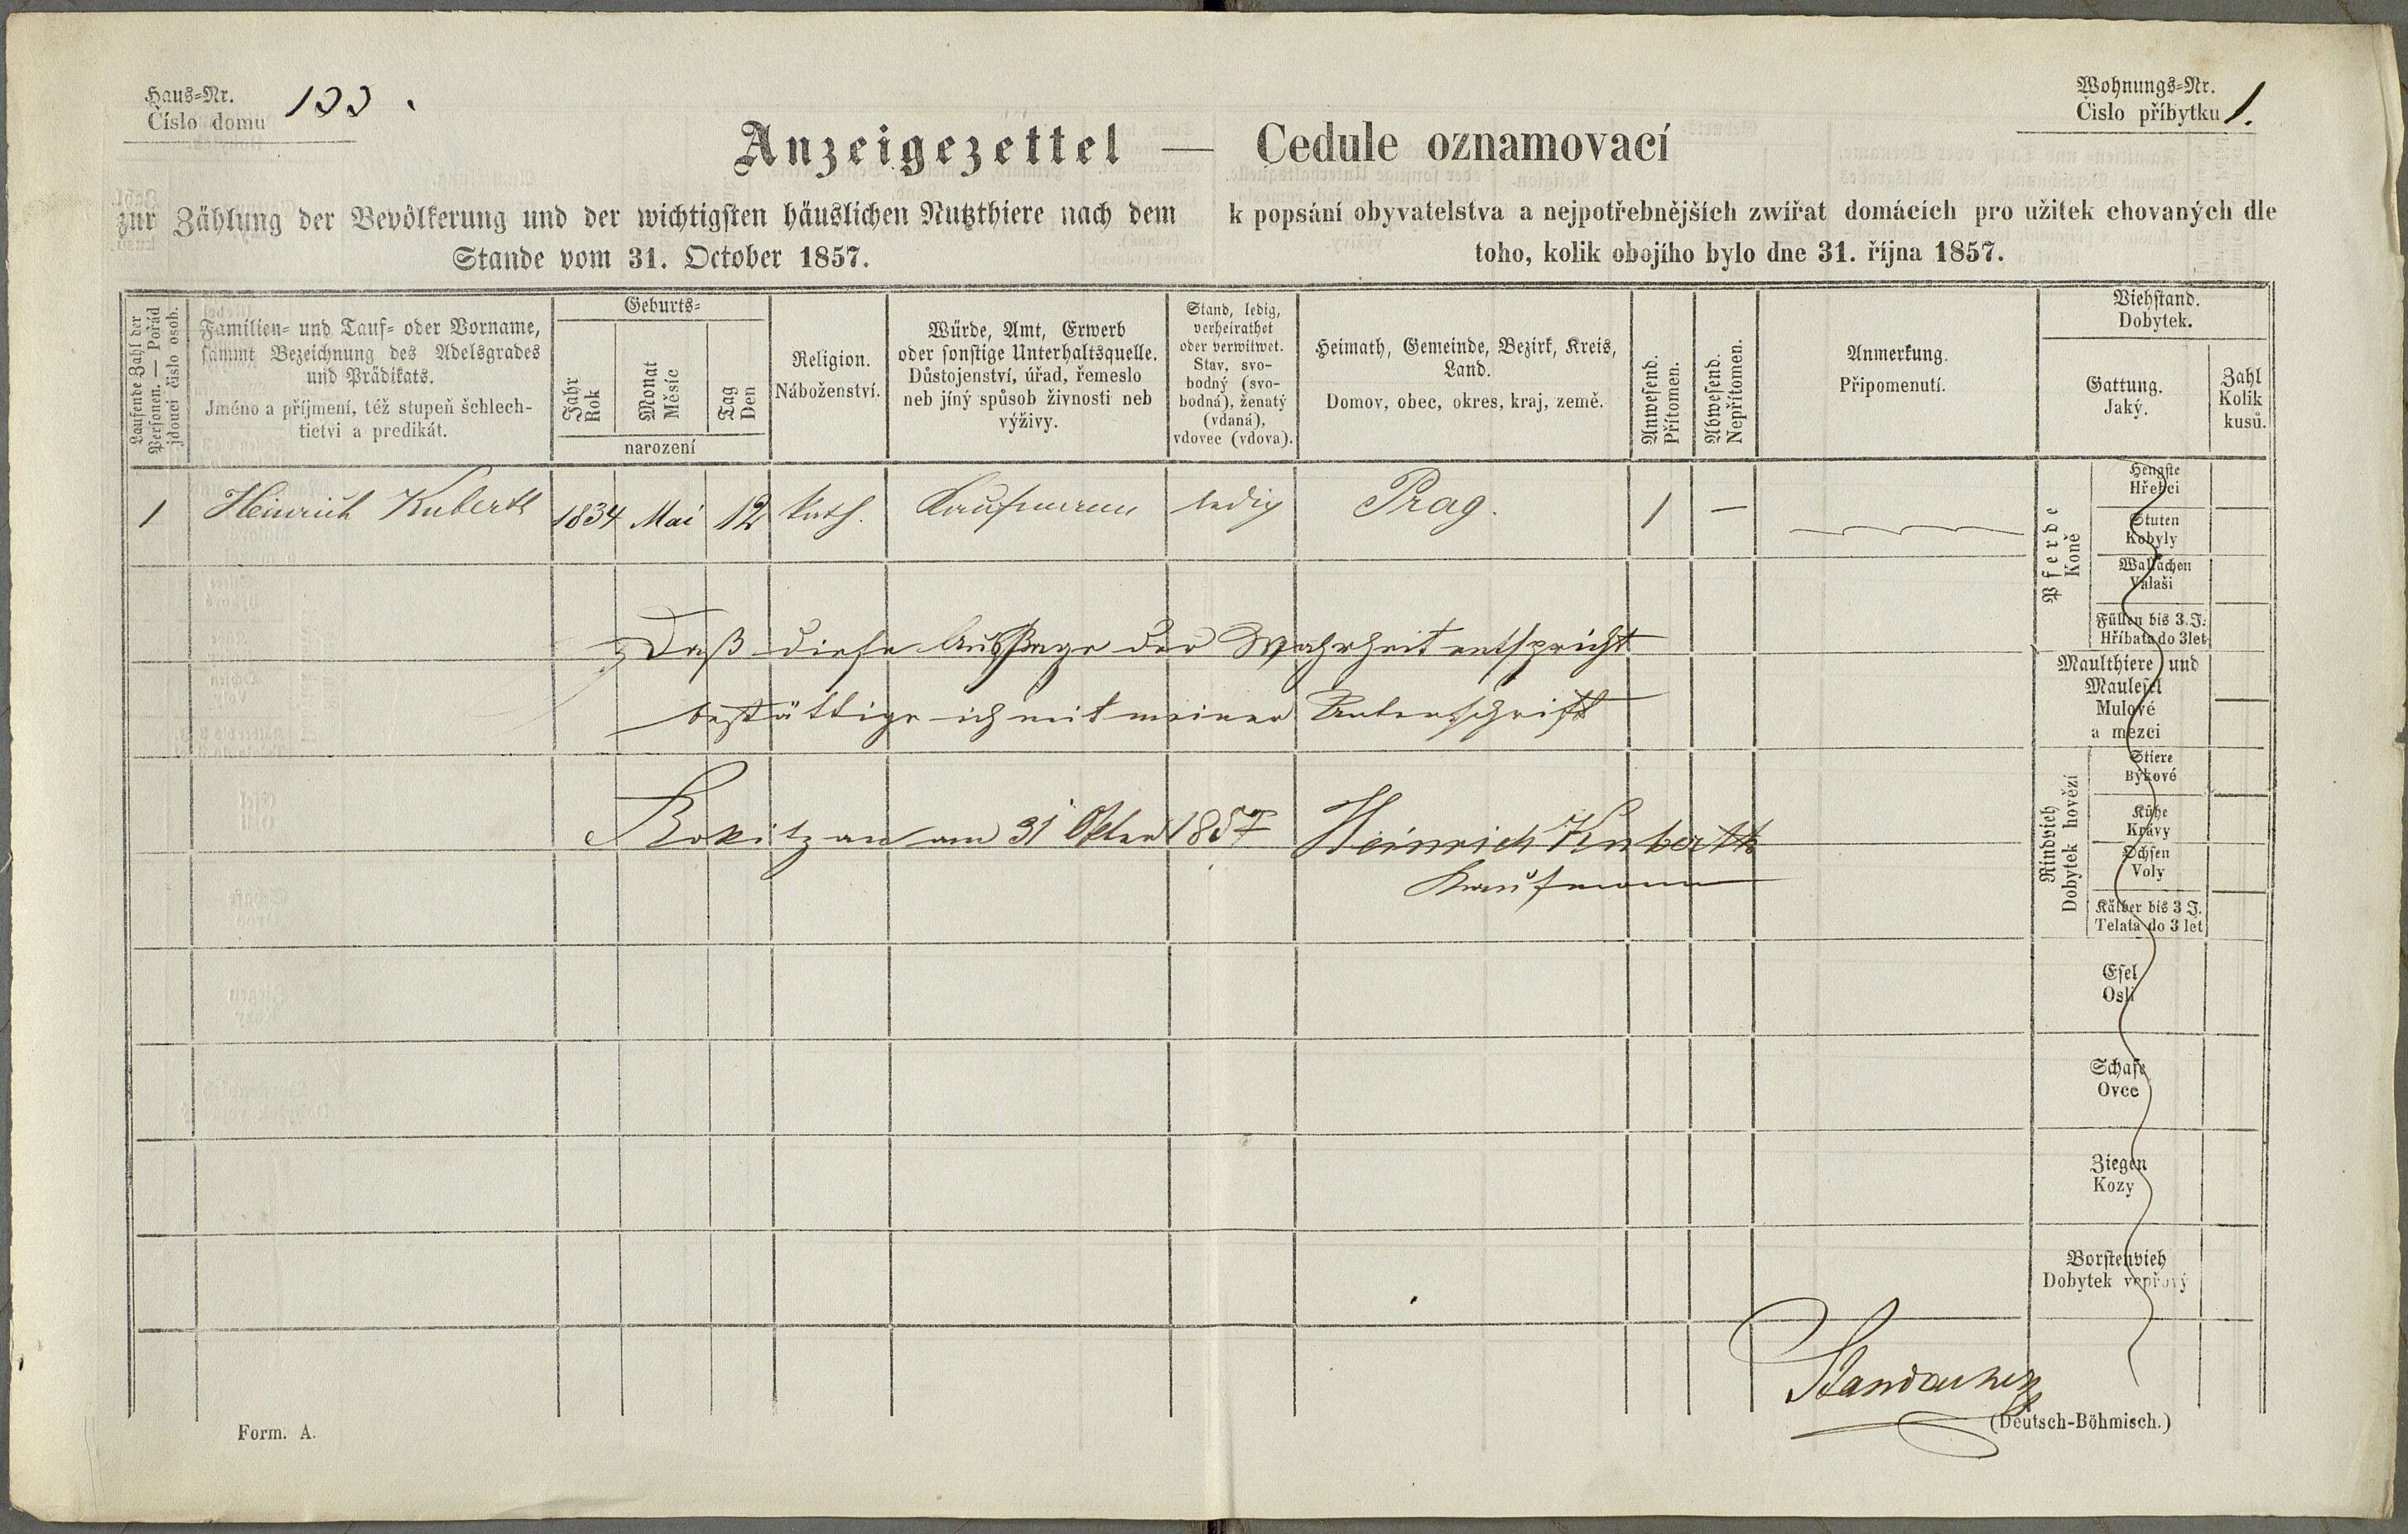 Haus-Nr.
Číslo domu 133.
Wohnungs-Nr.
Čislo příbytku 1.
Anzeigezettel — Cedule oznamovací
zur Zählung der Bevölkerung und der wichtigsten häuslichen Nutzthiere nach dem
Stande vom 31. October 1857.
k popsání obyvatelstva a nejpotřebnějších zwířat domácích pro užitek chovaných dle
toho, kolik obojího bylo dne 31. října 1857.
Laufende Zahl der
Personen. — Pořád
jdoucí číslo osob.
Familien- und Tauf- oder Vorname,
sammt Bezeichnung des Adelsgrades
und Prädikats.
Jméno a příjmení, též stupeň šchlech-
tictvi a predikát.
Geburts-
Jahr
Rok
Monat
Měsíc
Tag
Den
narození
Religion.
Náboženství.
Würde, Amt, Erwerb
oder sonstige Unterhaltsquelle.
Důstojenství, úřad, řemeslo
neb jíný spůsob živnosti neb
výživy.
Stand, ledig,
verheirathet
oder verwitwet.
Stav, svo-
bodný (svo-
bodná), ženatý
(vdaná),
vdovec (vdova).
Heimath, Gemeinde, Bezirk, Kreis,
Land.
Domov, obec, okres, kraj, země.
Anwesend.
Přítomen.
Abwesend.
Nepřítomen.
Anmerkung.
Připomenutí.
Viehstand.
Dobytek.
Gattung.
Jaký.
Zahl
Kolik
kusů.
1 Heinrich Kuberth 1834 Mai 12 kath. Kaufmann ledig Prag. 1 —
Daß diese Aussage der Wahrheit entspricht
bestättige ich mit meiner Unterschrift
Rokitzan am 31 Oktober 1857 Heinrich Kuberth
Kaufmann
Pferde
Koně
Hengste
Hřebci
Stuten
Kobyly
Wallachen
Valaši
Füllen bis 3 J.
Hříbata do 3 let
Maulthiere und
Maulesel
Mulové
a mezci
Rindvieh
Dobytek hovězí
Stiere
Býkové
Kühe
Krávy
Ochsen
Voly
Kälber bis 3 J.
Telata do 3 let
Esel
Osli
Schafe
Ovce
Ziegen
Kozy
Borstenvieh
Dobytek vepřový
Form. A.
(Deutsch-Böhmisch.)